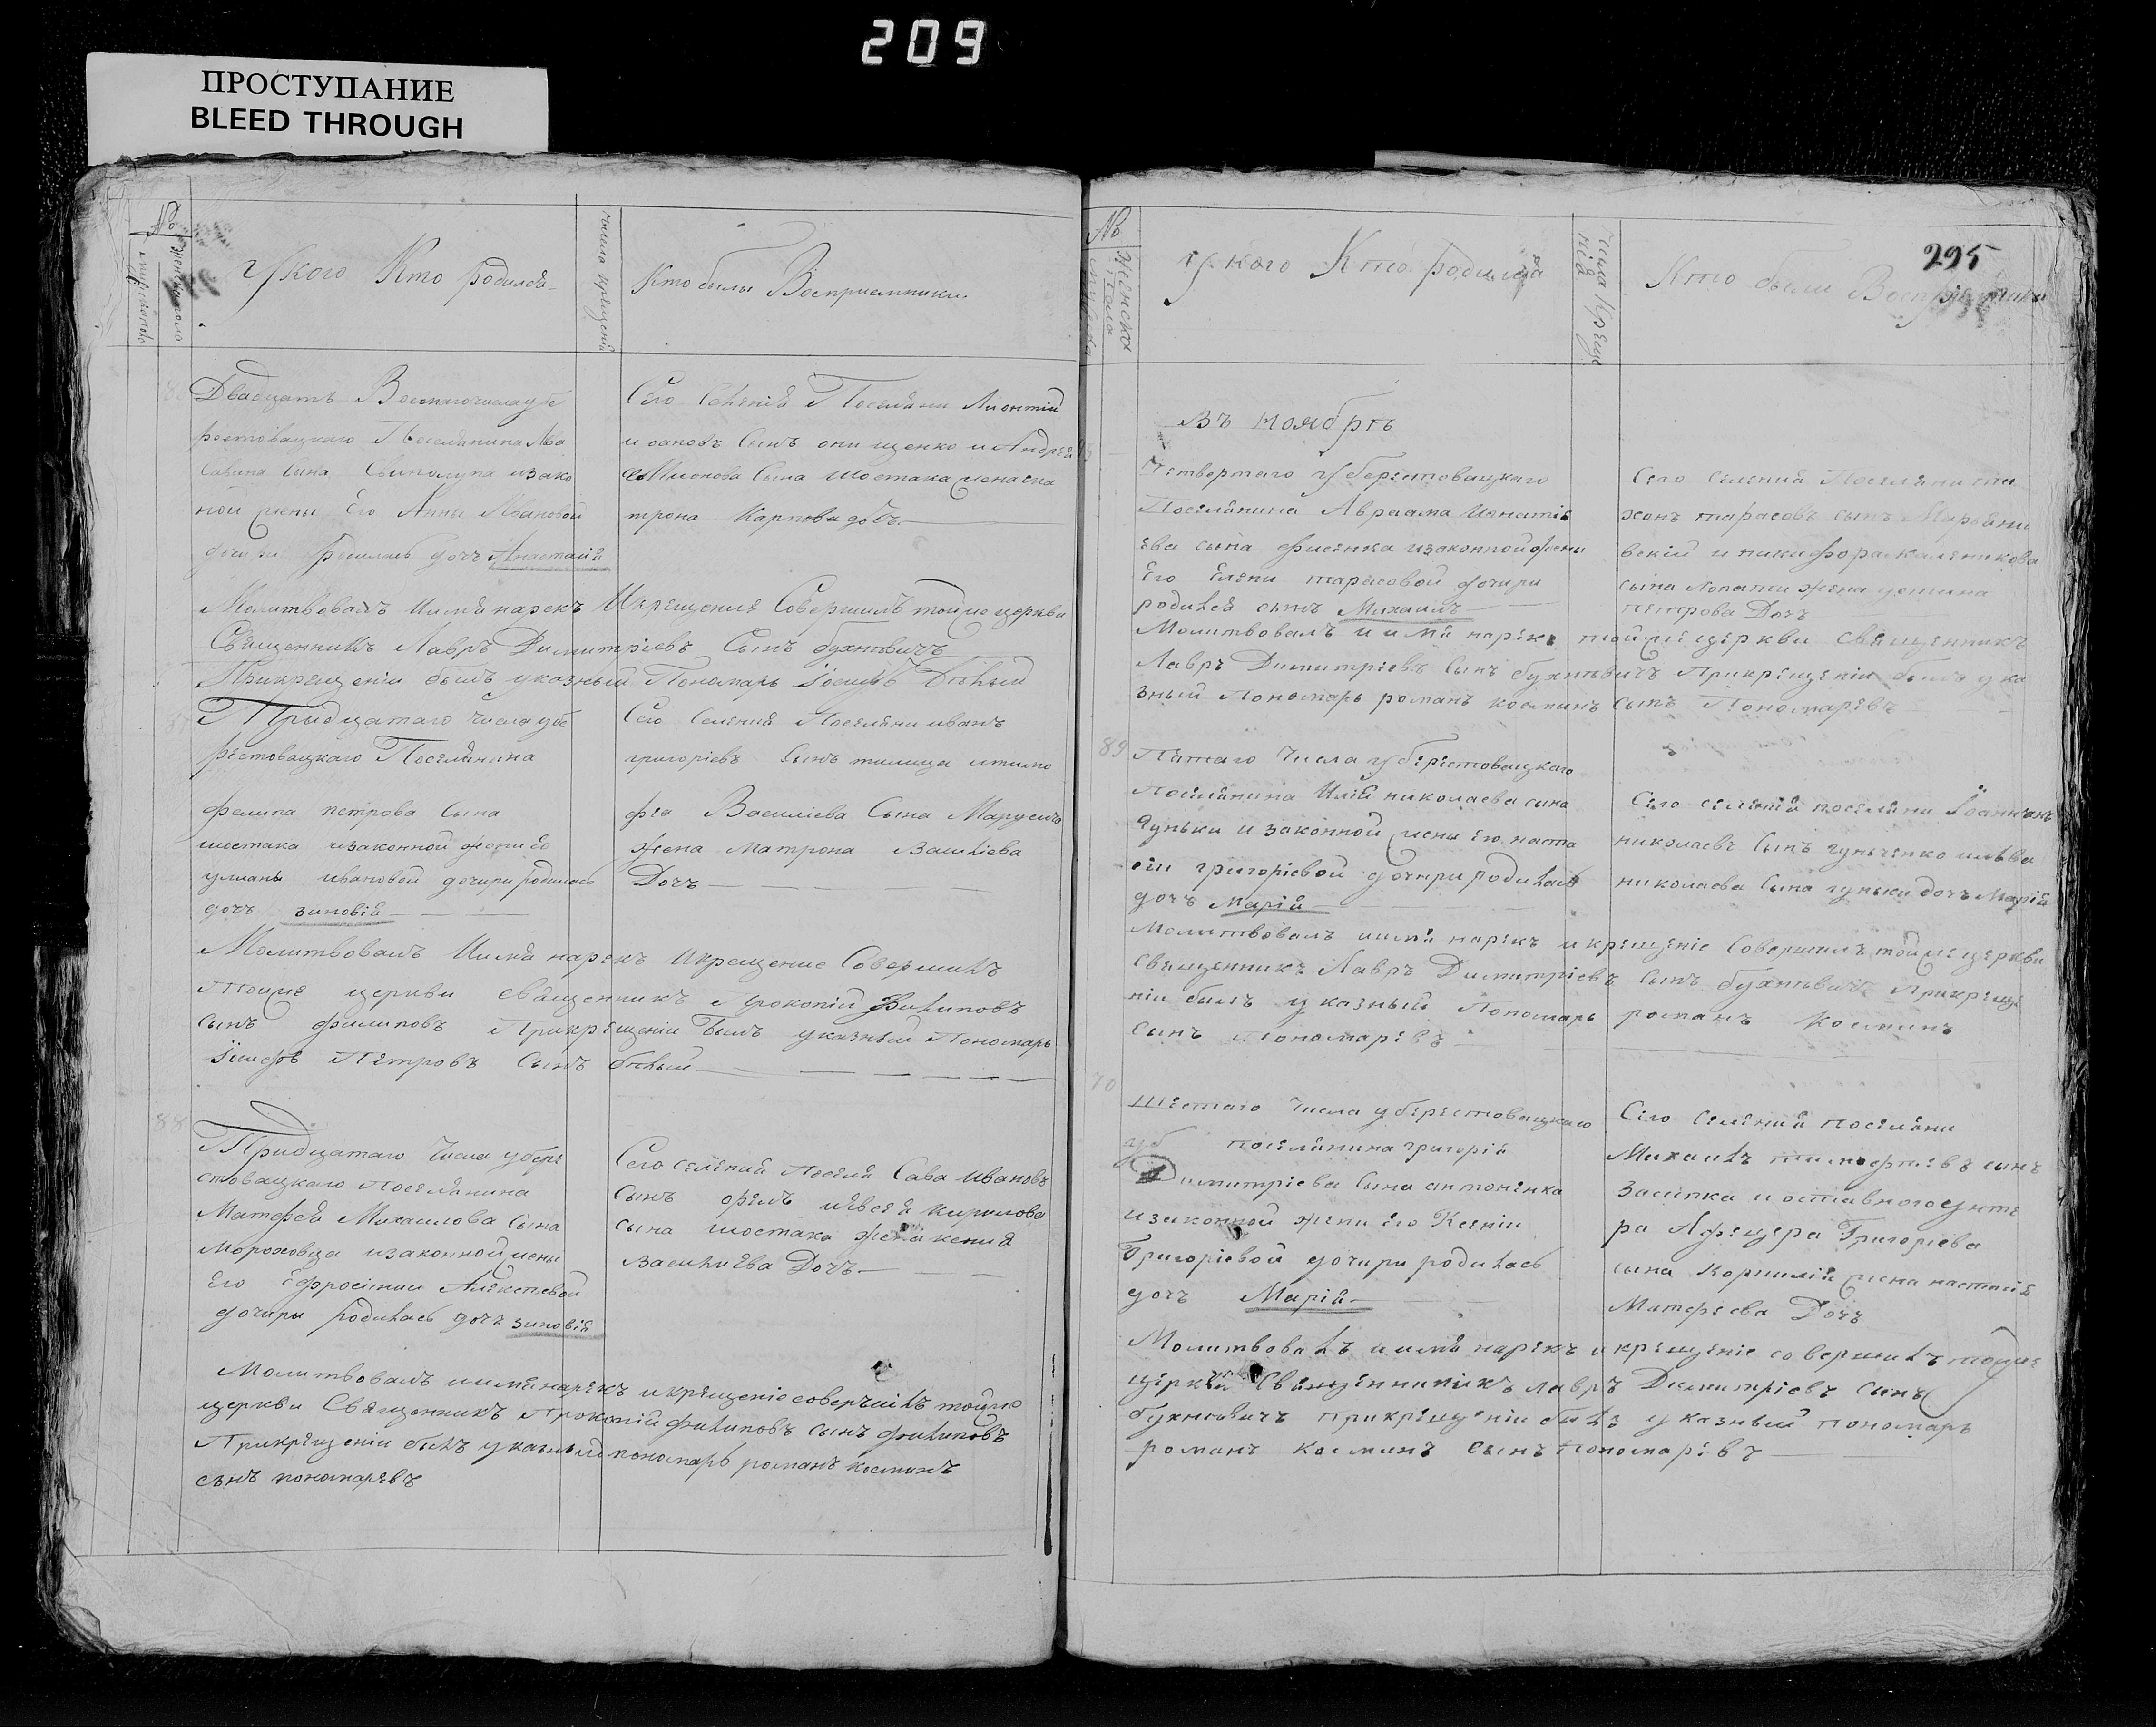 209
ПРОСТУПАНИЕ
BLEED THROUGH
№
женска пола
У кого Кто родился
числа крещений
Кто были Восприемники
Двадцать Восмаго числа у бе
рестовацкаго Поселянина
Савина сына изако
ной жены Его Анны Ивановой
дочири родилась дочъ Анастасія
Сего Селенія Поселяни Лионтий
сынъ онищенко и Андрей
Мионова Сына Шостака жена
трона Карпова дочъ
Молитвовалъ Иимя нарекъ Икрещения Совершилъ тойже церкви
Священникъ Лавръ Димитріевъ Сынъ бухневичъ
Прикрещеніи былъ указный Пономарь Іосифъ Бѣлый
Тридцатаго числа у бе
рестовацкаго Поселянина
филипа петрова сына
шостака изаконной жени ео
улианы ивановой дочири родилась
дочъ зиновія
Сего Селения Поселяни иванъ
григоріевъ Сынъ итимо
фея Василіева Сына
жена Матрона Василіева
Дочъ
Молитвовалъ Иимя нарекъ Икрещение Совершилъ
Тойже церкви священникъ Прокопій Филиповъ
сынъ филиповъ Прикрещеніи былъ указный Пономарь
Іосифъ Петровъ Сынъ бѣлый
88
Тридцатаго числа у бере
стовацкаго Поселянина
Матфея Михаилова Сына
Мороховца изаконной жены
Его Ефросинии Алексѣевой
дочири родилась дочъ зиновія
Сего селения Посели Сава Ивановъ
Сынъ кирилова
сына шостака жена ксения
Василиева Дочъ
Молитвовалъ иимя нарекъ икрещеніе соверъшилъ тойже
церкви Священникъ Прокопій филиповъ сынъ филиповъ
Прикрещеніи былъ указный пономарь романъ косминъ
сынъ пономаревъ
№
женска пола
У кого Кто родился
числа Креще
ніа
295
Кто были Восприемники
Въ ноябрѣ
Четвертаго у берестовацкаго
Поселянина Авраама Игнатіе
ева сына фисенка изаконной жены
Его Елени тарасовой дочири
родился сынъ Михаилъ
Сего Селения Поселяни ти
хонъ тарасовъ сынъ
вский и никифора каленикова
сына Лопати жена
петрова Дочъ
Молитвовалъ иимя нарекъ тойже церкви священникъ
Лавръ Димитріевъ сынъ бухневичъ Прикрещеніи былъ ука
зный Пономарь романъ косминъ сынъ Пономаревъ
89
Пятаго числа у берестовацкаго
Поселянина Илии николаева сына
гуньки изаконной жены его наста
сіи григоріевой дочири родилась
дочъ Марія
Сего селения поселяни Іоаннъ
николаевъ Сынъ гунченко ильва
николаева сына гуньки дочъ Марія
Молитвовалъ иимя нарекъ икрещеніе Совершилъ тойже церкви
священникъ Лавръ Димитріевъ сынъ бухневичъ Прикреще
ніи былъ указный Пономарь романъ косминъ
сынъ Пономаревъ
70
Шестаго числа у берестовацкаго
поселянина григорія
Димитріева Сына антоненка
изаконной жени его Ксении
Григоріевой дочири родилась
дочъ Марія
Сего селения поселяни
Михаилъ тимофіевъ сынъ
засипка иоставного унте
ра Афецера Григорієва
сына жена настасія
Матфеева Дочъ
Молитвовалъ иимя нарекъ икрещеніе совершилъ тойже
церкви Священникъ лавръ Димитріевъ сынъ
бухневичъ прикрещеніи билъ указный пономарь
романъ косминъ сынъ пономаревъ